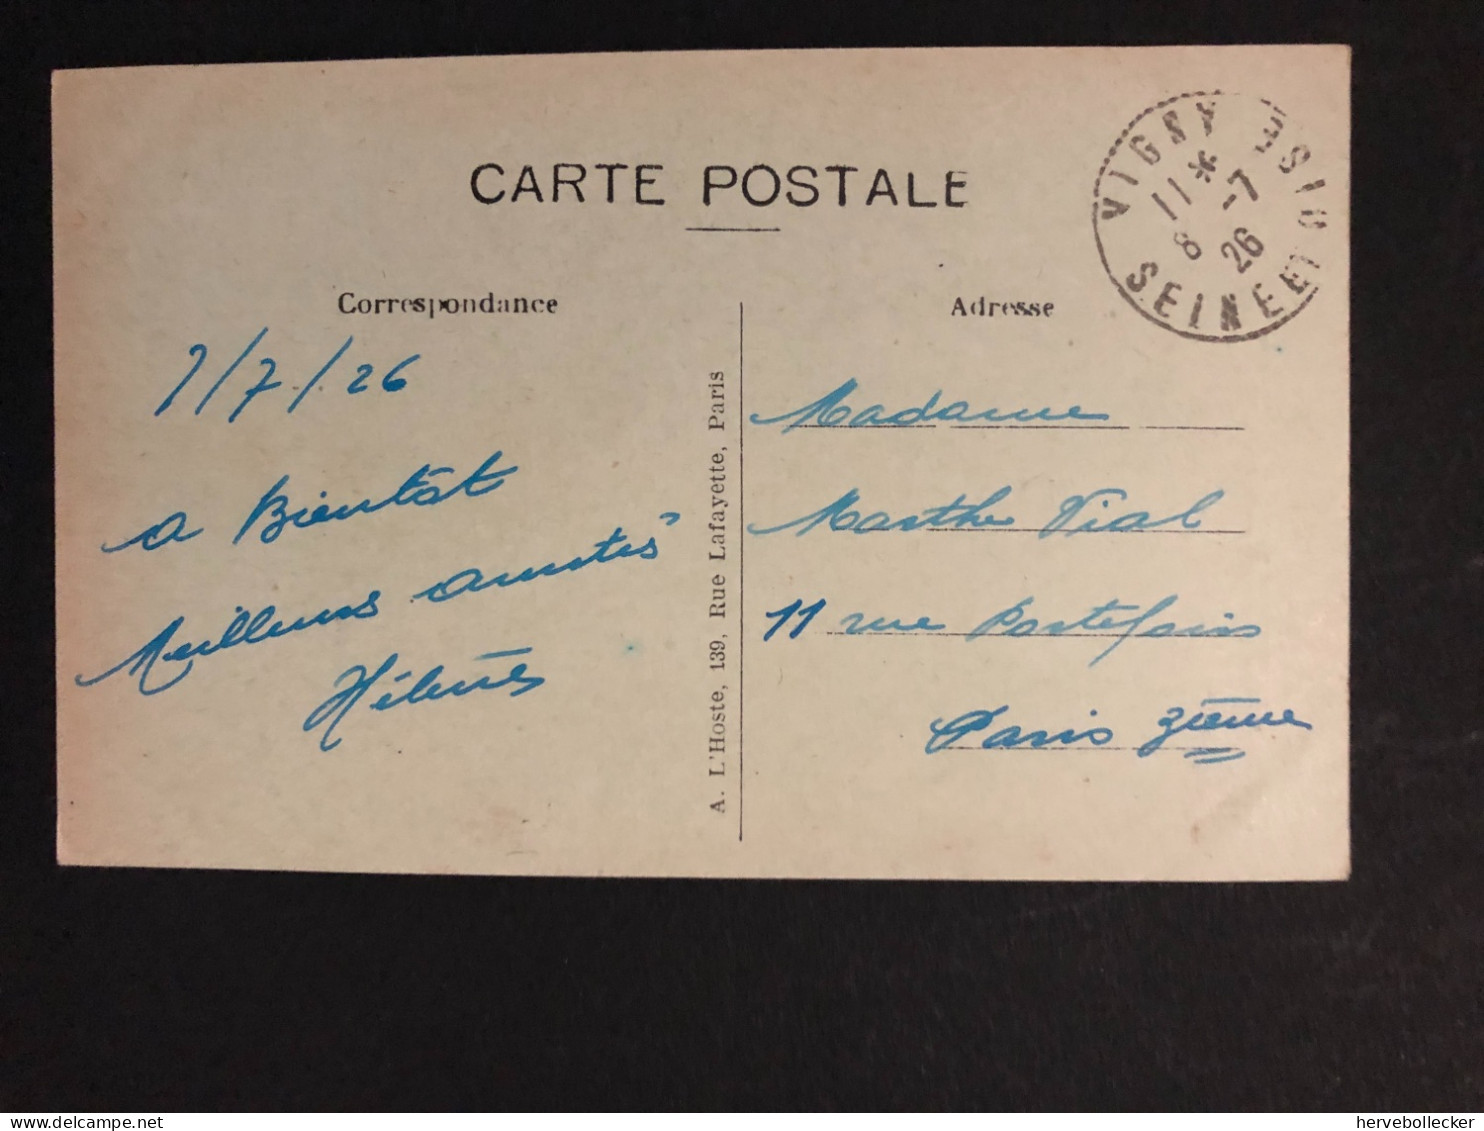 CARTE POSTALE
Correspondance
Adresse
7/7/26
a Bientôt
Meilleures amitiés
Hélène
A. L'Hoste, 139, Rue Lafayette, Paris
Madame
Marthe Vial
11 rue Portefoin
Paris 3ième
VIGNY
11 * -7
8 26
SEINE ET OISE
hervebollecker